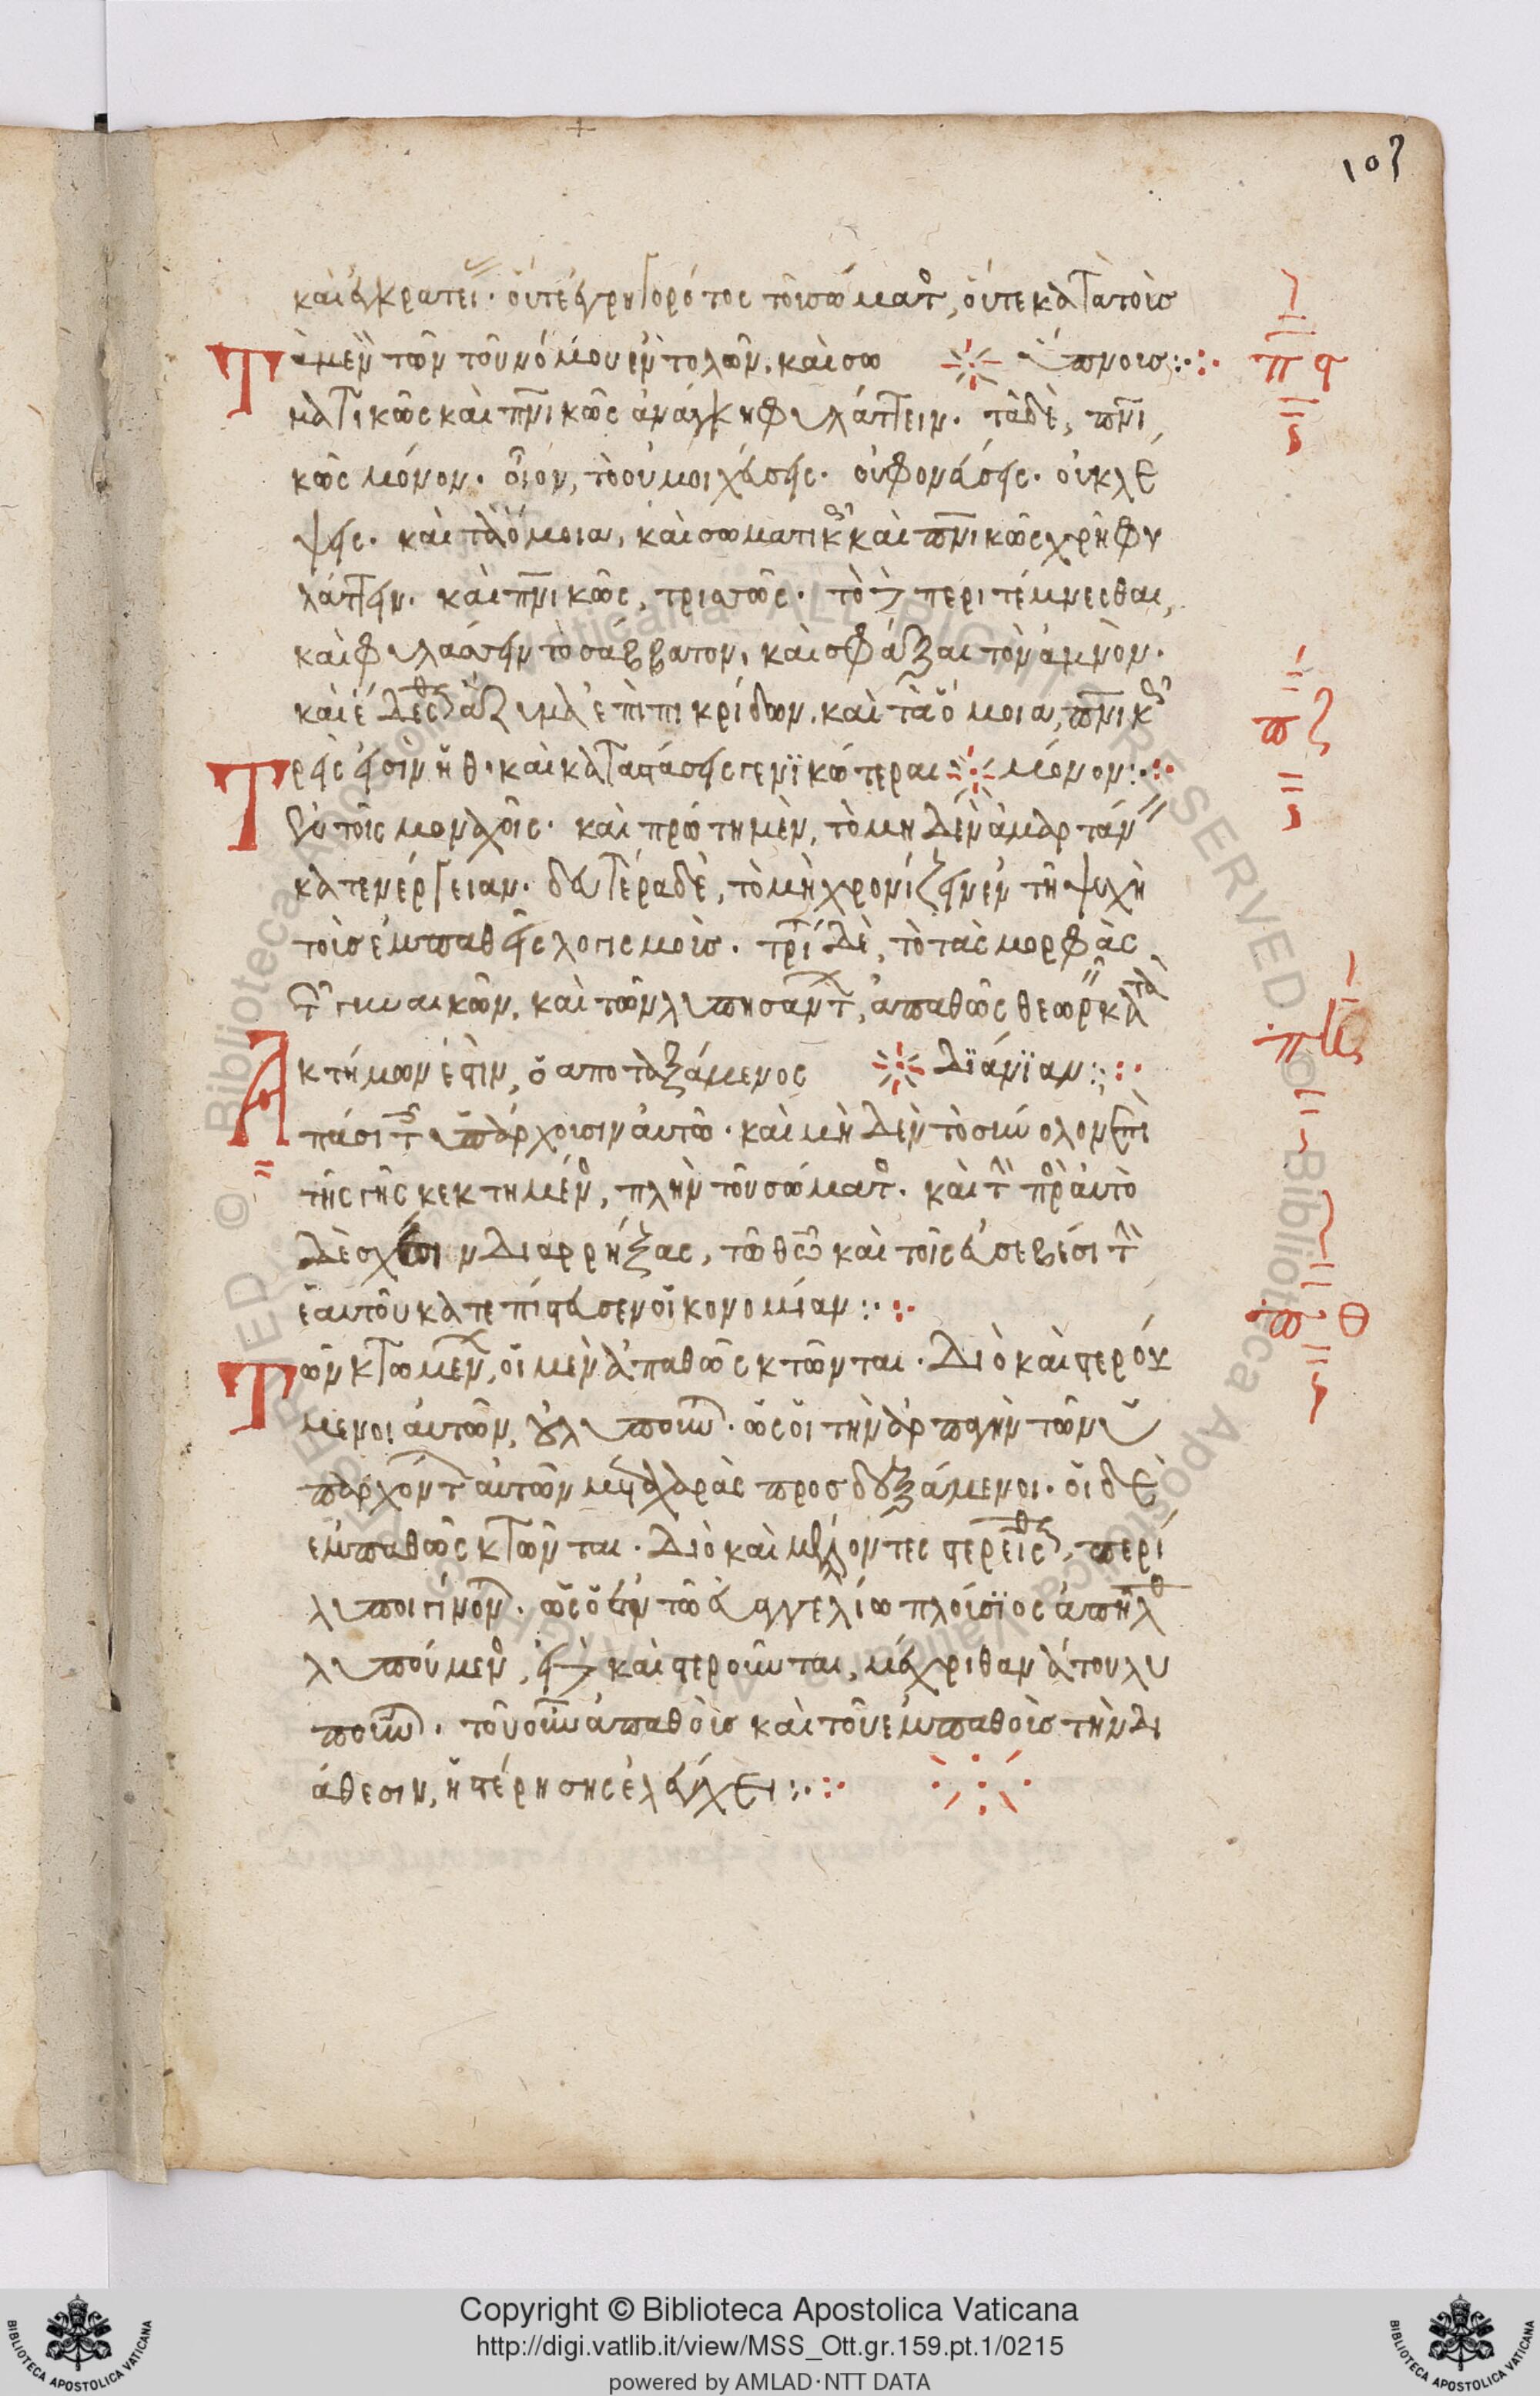 103
καὶ ἐγκρατεῖ· οὔτε ἐγρηγορότος τοῦ σώματ(ος), οὔτε κατὰ τοὺς
Τὰ μὲν τῶν τοῦ νόμου ἐντολῶν, καὶ σω ὕπνους πϛ
ματικῶς καὶ πνικῶς ἀνάγκη φυλάττειν· τὰ δὲ, πνι
κῶς μόνον· οἷον, τὸ οὐ μοιχεύσεις· οὐ φονεύσεις· οὐ κλέ
ψεις· καὶ τὰ ὅμοια, καὶ σωματικῶς καὶ πνικῶς χρὴ φυ
λάττειν· καὶ πνικῶς, τρισσῶς· τὸ δὲ περιτέμνεσθαι,
καὶ φυλάσσειν τὸ σάββατον, καὶ σφάξαι τὸν ἀμνὸν·
καὶ ἐδεσθ(αι) ἄζυμα ἐπὶ πικρίδων, καὶ τὰ ὅμοια, πνικῶς πζ
Τρεῖς εἰσὶν ἠθ· καὶ καταστάσεις γενικώτεραι μόνον
ἐν τοῖς μοναχοῖς· καὶ πρώτη μὲν, τὸ μηδὲν ἁμαρτάν
κατ ενέργειαν· δευτέρα δὲ, τὸ μὴ χρονίζειν ἐν τῇ ψυχῇ
τοὺς ἐμπαθεῖς λογισμοὺς· τρί δὲ, τὸ τὰς μορφὰς
τῶν γυναικῶν, καὶ τῶν λυπησάντ, ἀπαθῶς θεωρ κατὰ
Ἀκτήμων ἐστὶν, ὁ αποταξάμενος διάνοιαν πη
πᾶσι τοῖς ὑπάρχουσιν αὐτῶ· καὶ μηδὲν τὸ σύνολον ἐπὶ
τῆς γῆς κεκτημέν, πλὴν τοῦ σώματ· καὶ τὴν πρὸ αὐτὸ
δὲ σχέσιν διαρρήξας, τῶ θῶ καὶ τοῖς εὐσεβέσι τὴν
ἑαυτοῦ κατεπίστευσεν οἰκονομίαν
Τῶν κτωμέν, οἱ μὲν ἀπαθῶς κτῶνται· διὸ καὶ στερού πθ
μενοι αὐτῶν, οὐ λυποῦν· ὡς οἱ τὴν ἁρπαγὴν τῶν ὑ
παρχόντ αὐτῶν μετὰ χαρὰς προσδεξάμενοι· οἱ δὲ
ἐμπαθῶς κτῶνται· διὸ καὶ μέλλοντες στερεῖσθ, περί
λυποι γίνον· ὡς ὁ ἐν τῶ εὐαγγελίω πλούσιος ἀπῆλθ
λυπούμεν, εἰ δὲ καὶ στεροῦνται, μέχρι θανάτου λυ
ποῦν· τοῦ οὖν ἀπαθοῦς καὶ τοῦ ἐμπαθοῦς τὴν δι
άθεσιν, ἡ στέρησης ἐλέγχει
Copyright © Biblioteca Apostolica Vaticana
http://digi.vatlib.it/view/MSS_Ott.gr.159.pt.1/0215
powered by AMLAD·NTT DATA